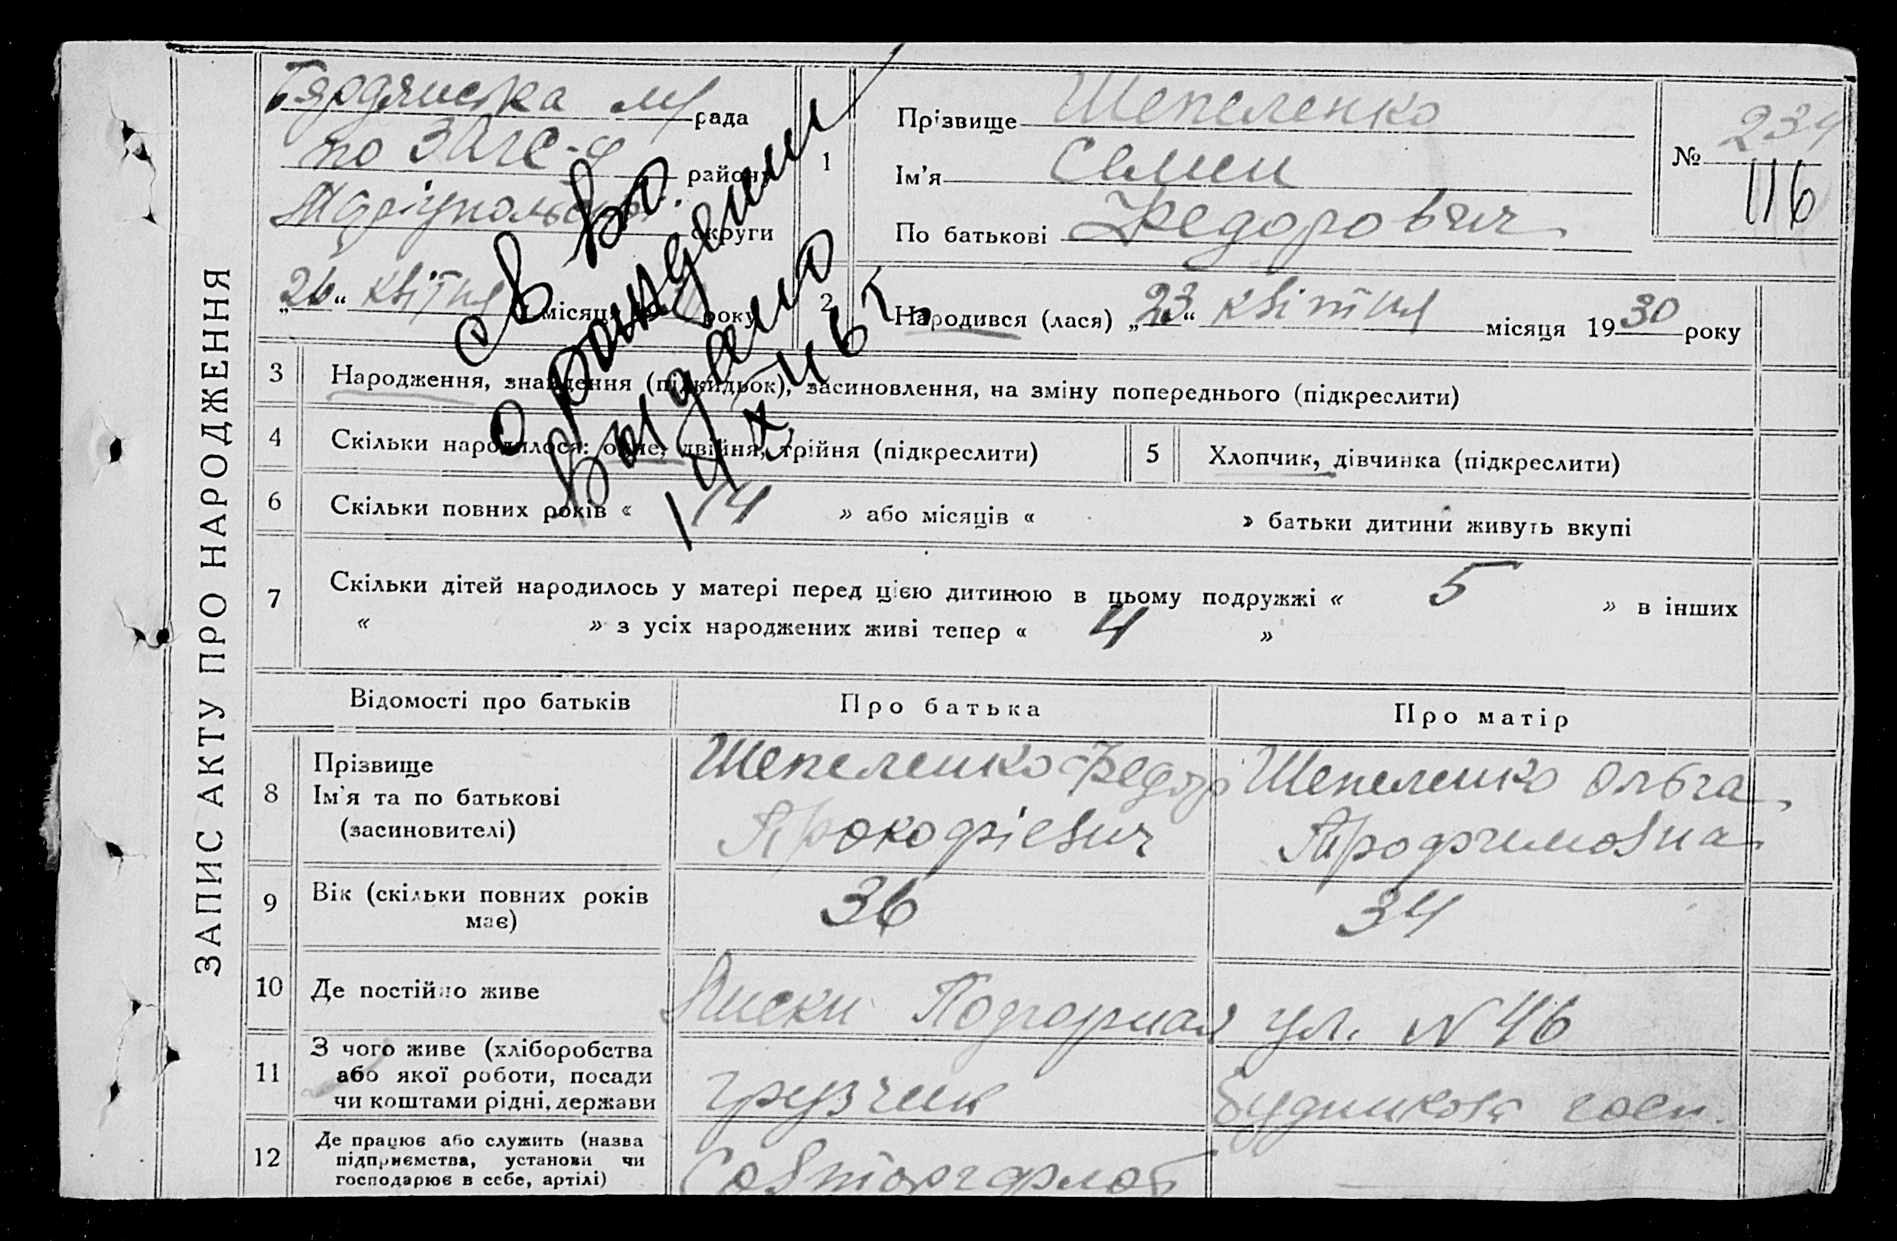 ЗАПИС АКТУ ПРО НАРОДЖЕННЯ
Бярдянська м/ рада
по ЗАГС-у району
Маріупольськ. округи
„26“ квітня місяця року
1
Прізвище Шепеленко
Ім’я Семен
По батькові Федорович
№ 234
116
2 Народився (лася) „23“ квітня місяця 1930 року
Св во
о рождении
Выдано
14 X 46 г.
3 Народження, знайдення (підкидьок), засиновлення, на зміну попереднього (підкреслити)
4 Скільки народилося: одне, двійня, трійня (підкреслити) 5 Хлопчик, дівчинка (підкреслити)
6 Скільки повних років « 14 » або місяців « » батьки дитини живуть вкупі
7 Скільки дітей народилось у матері перед цією дитиною в цьому подружжі « 5 » в інших
« » з усіх народжених живі тепер « 4 »
Відомості про батьків Про батька Про матір
8 Прізвище
Ім’я та по батькові
(засиновителі)
Шепеленко Федор
Прокофієвич
Шепеленко Ольга
Трофимовна
9 Вік (скільки повних років
має)
36 34
10 Де постійно живе Лиски Подгорная ул. N 46
11 З чого живе (хліборобства
або якої роботи, посади
чи коштами рідні, держави
грузчик госп.
12 Де працює або служить (назва
підприємства, установи чи
господарює в себе, артілі)
Совторгфлот